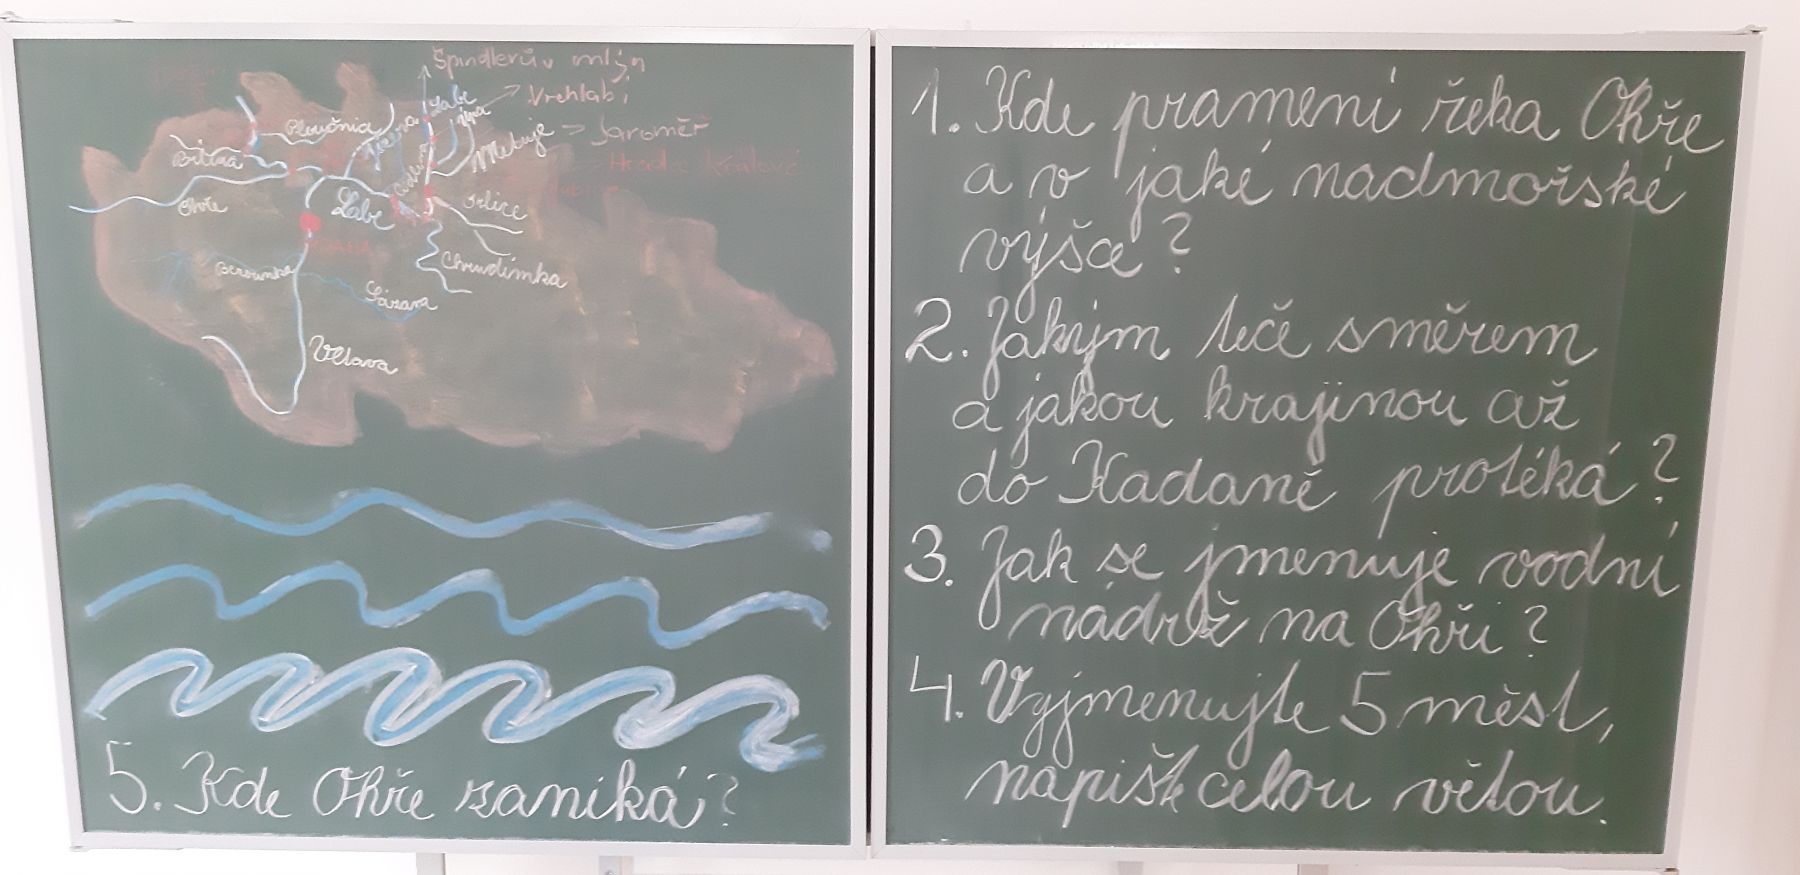 Špindlerův mlýn
Vrchlabí
Labe
Úpa
Ploučnice
Jizera
Metuje
Jaroměř
Bílina
Hradec Králové
Cidlina
Ohře
Labe
Orlice
PRAHA
Berounka
Chrudimka
Sázava
Vltava
5. Kde Ohře zaniká?
1. Kde pramení řeka Ohře
a v jaké nadmořské
výšce?
2. Jakým teče směrem
a jakou krajinou až
do Kadaně protéká?
3. Jak se jmenuje vodní
nádrž na Ohři?
4. Vyjmenujte 5 měst,
napište celou větou.